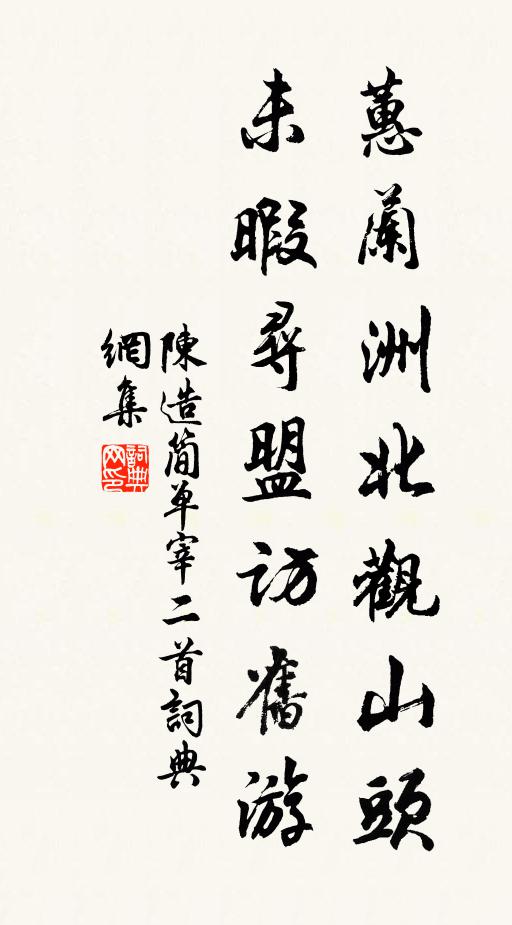 蕙蘭洲北觀山頭
未暇尋盟訪舊游
陳造简单宰二首詞典
網集
詞典
网印